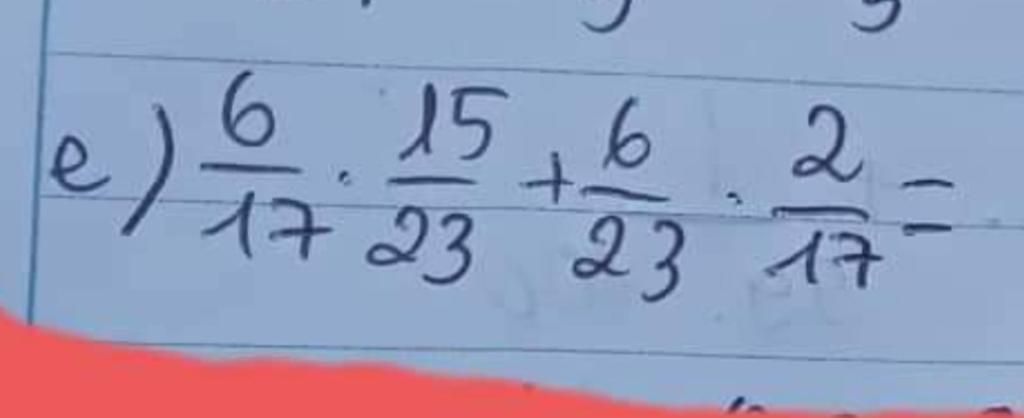 e) 6/17 · 15/23 + 6/23 · 2/17 =